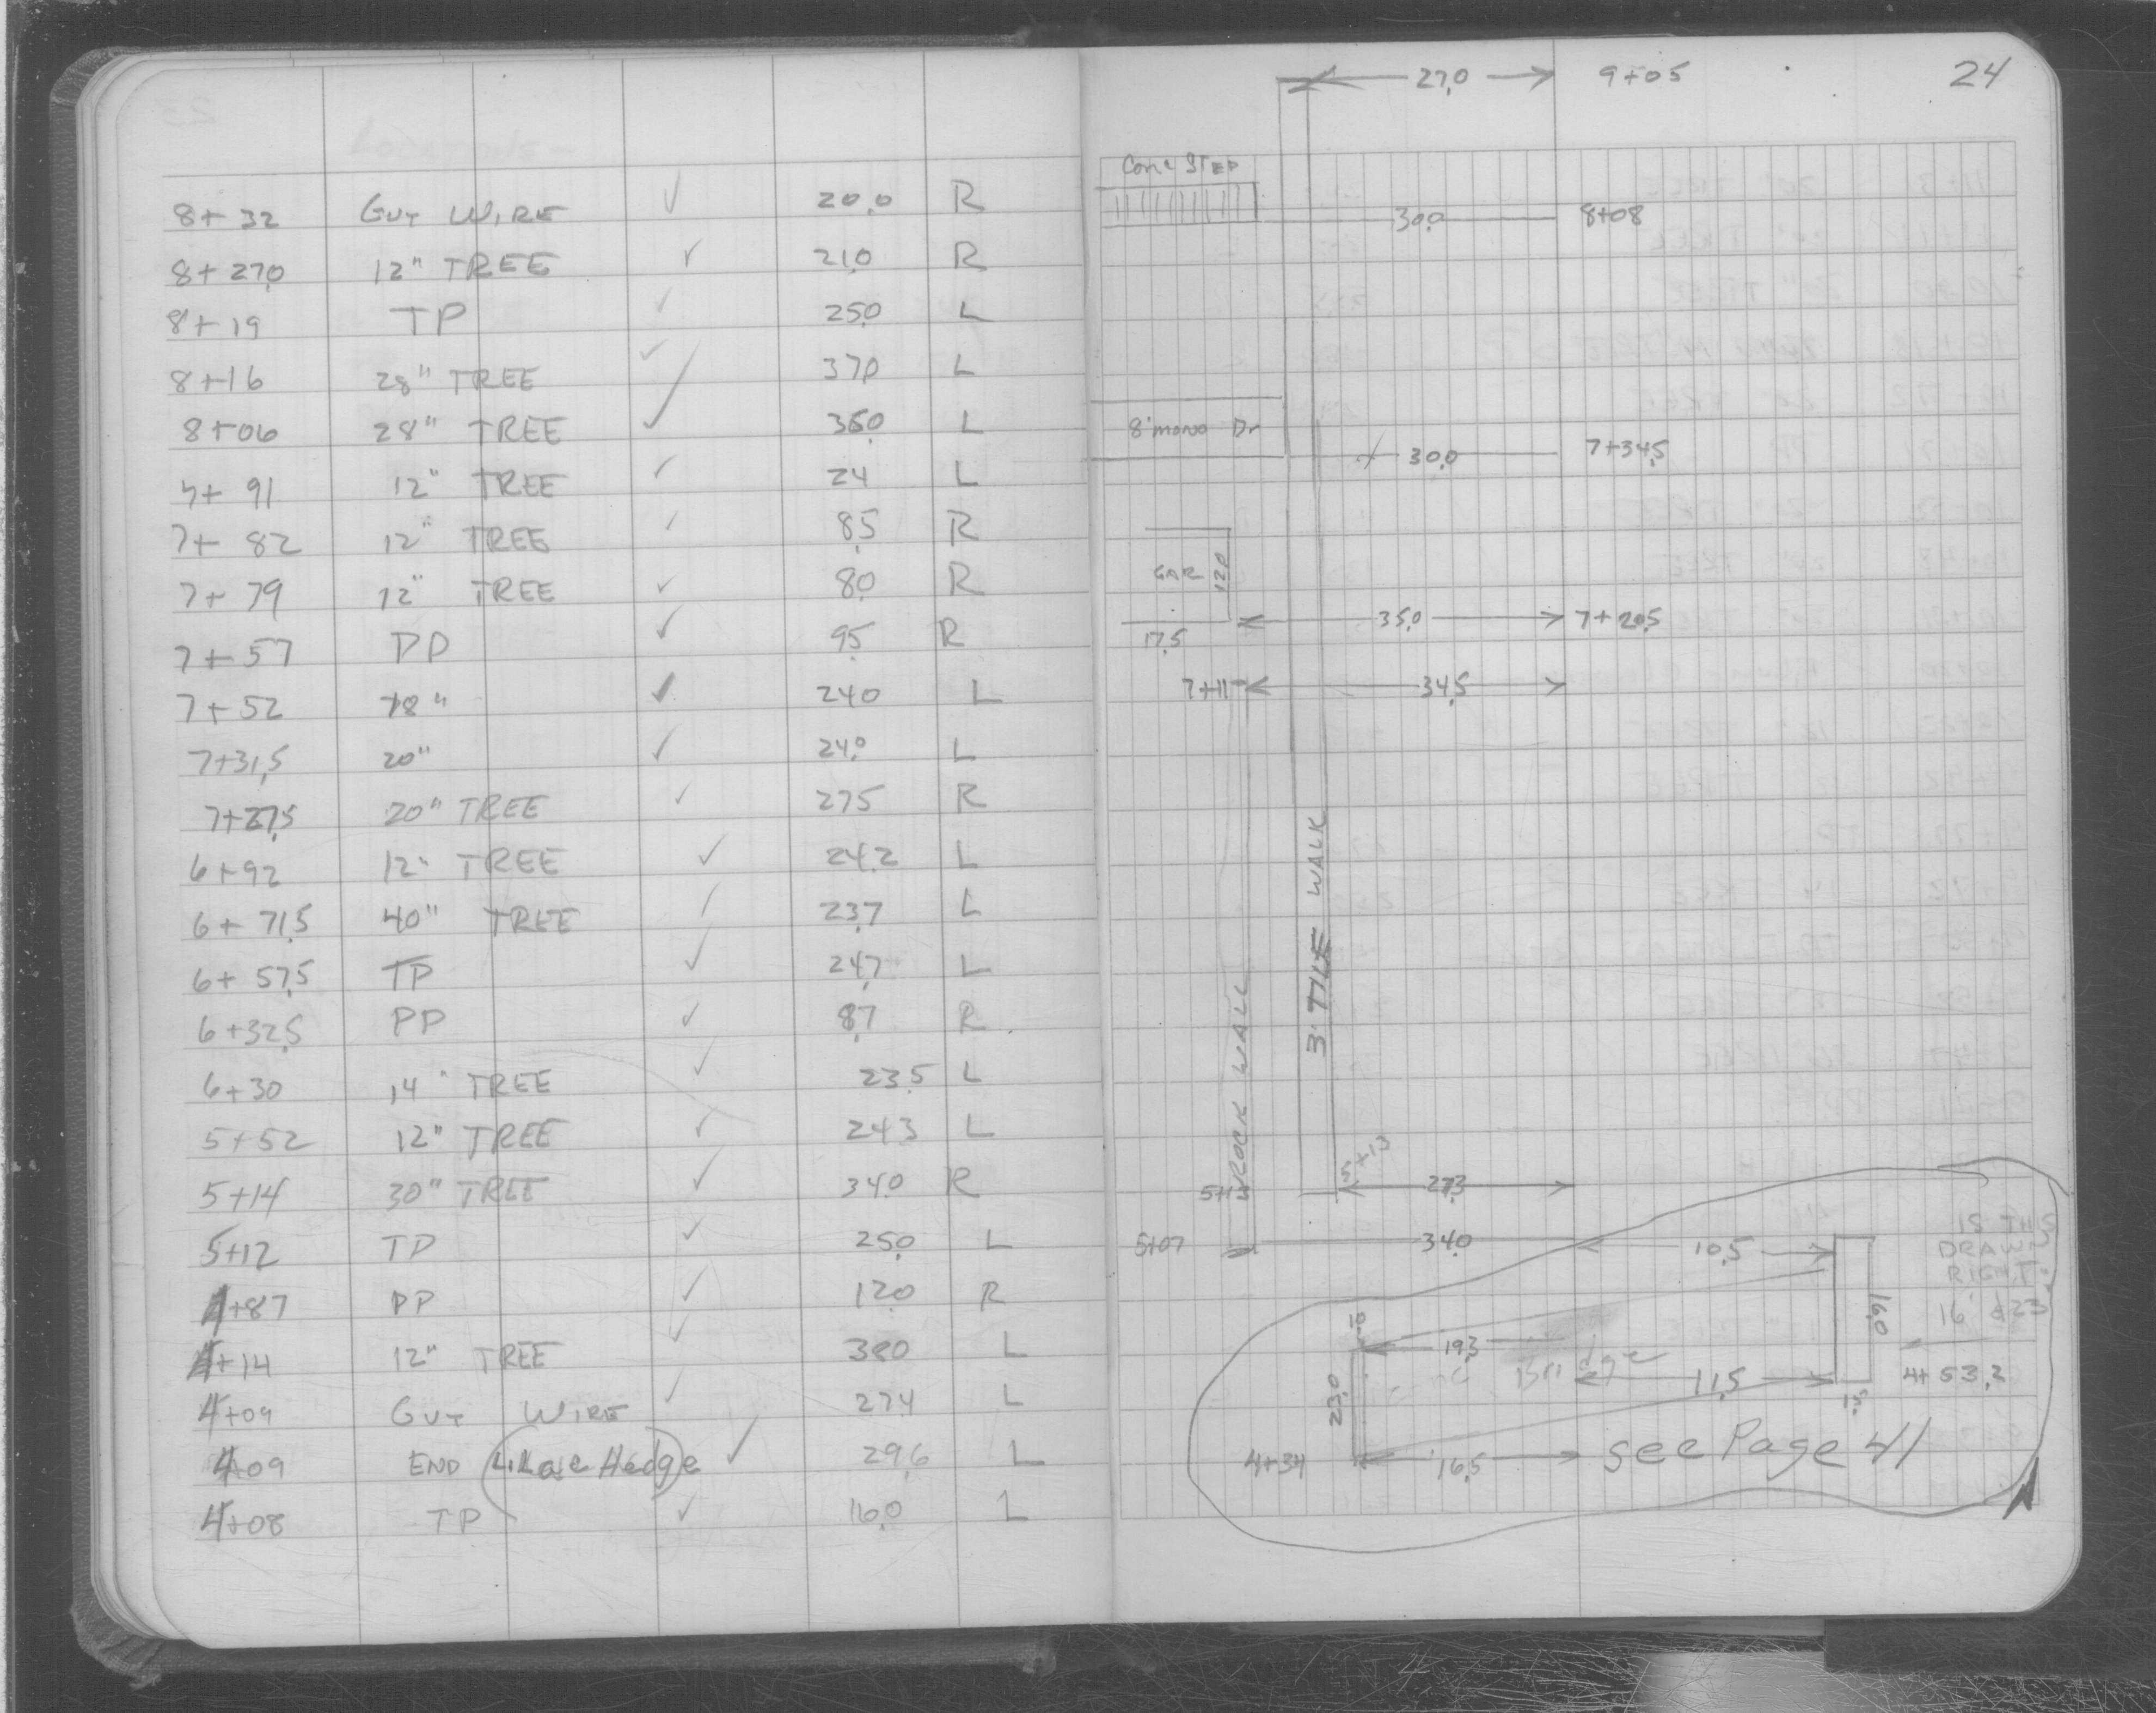 24
8+32 GUY WIRE ✓ 20.0 R
8+27.0 12" TREE ✓ 21.0 R
8+19 TP ✓ 25.0 L
8+16 28" TREE ✓ 37.0 L
8+06 28" TREE ✓ 36.0 L
7+91 12" TREE ✓ 24 L
7+82 12" TREE ✓ 8.5 R
7+79 12" TREE ✓ 8.0 R
7+57 PP ✓ 9.5 R
7+52 18" ✓ 24.0 L
7+31.5 20" ✓ 24.0 L
7+27.5 20" TREE ✓ 27.5 R
6+92 12" TREE ✓ 24.2 L
6+71.5 40" TREE ✓ 23.7 L
6+57.5 TP ✓ 24.7 L
6+32.5 PP ✓ 8.7 R
6+30 14" TREE ✓ 23.5 L
5+52 12" TREE ✓ 24.3 L
5+14 30" TREE ✓ 34.0 R
5+12 TP ✓ 25.0 L
4+87 PP ✓ 12.0 R
4+14 12" TREE ✓ 38.0 L
4+09 GUY WIRE ✓ 27.4 L
4+09 END Lilac Hedge ✓ 29.6 L
4+08 TP ✓ 16.0 L
27.0 9+05
Conc STEP
30.0 8+08
8' mono Dr
30.0 7+34.5
GAR 12.0
35.0 7+20.5
17.5
7+11 34.5
3' TILE WALK
ROCK WALL
5+13
27.3
5+07 34.0 10.5
IS THIS
DRAWN
RIGHT?
16' & 23'
16.0
19.3
Bridge
23.0
11.5 4+53.2
1.5
4+34 16.5 see Page 41